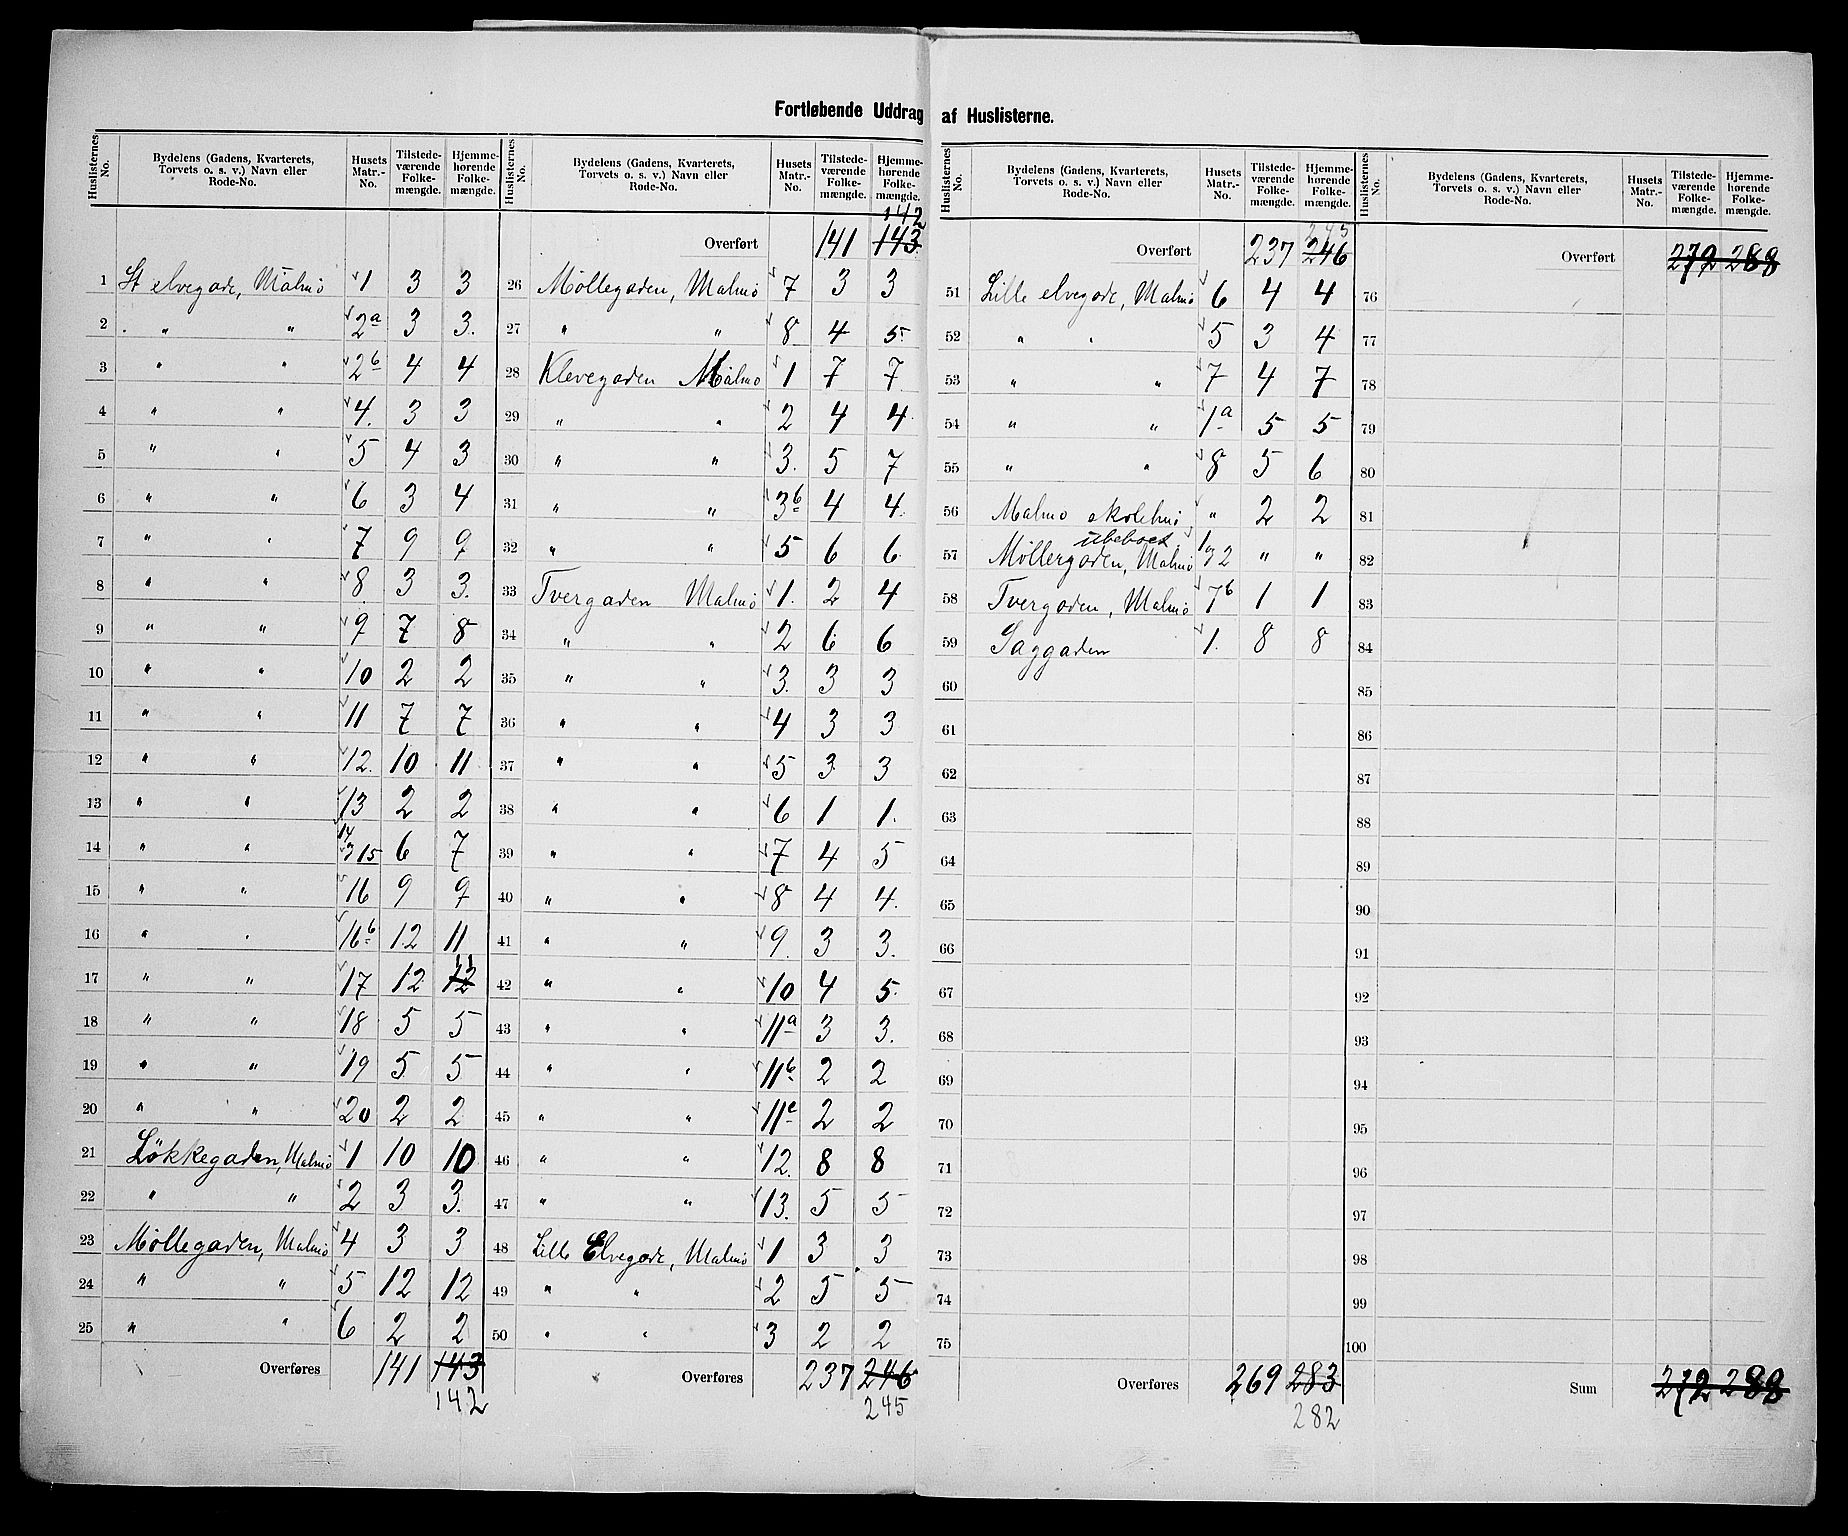 Fortløbende Uddrag af Huslisterne.
Huslisternes No. | Bydelens (Gadens, Kvarterets, Torvets o. s. v.) Navn eller Rode-No. | Husets Matr.-No. | Tilstedeværende Folkemængde. | Hjemmehørende Folkemængde.
1 St elvegade, Malmø 1 3 3
2 " " 2a 3 3.
3 " " 2b 4 4
4 " " 4. 3 3
5 " " 5 4 3
6 " " 6 3 4
7 " " 7 9 9
8 " " 8. 3 3.
9 " " 9 7 8
10 " " 10 2 2
11 " " 11 7 7
12 " " 12. 10 11
13 " " 13 2 2
14 " " 14 3 15 6 7
15 " " 16 9 9
16 " " 16b 12 11
17 " " 17 12 12 11
18 " " 18 5 5
19 " " 19 5 5
20 " " 20 2 2
21 Løkkegaden, Malmø 1 10 10
22 " " 2 3 3.
23 Møllegaden, Malmø 4 3 3
24 " " 5 12 12
25 " " 6 2 2
Overføres 141 143
142
Huslisternes No. | Bydelens (Gadens, Kvarterets, Torvets o. s. v.) Navn eller Rode-No. | Husets Matr.-No. | Tilstedeværende Folkemængde. | Hjemmehørende Folkemængde.
142
Overført 141 143
26 Møllegaden, Malmø 7 3 3
27 " " 8 4 5
28 Klevegaden Malmø 1 7 7
29 " " 2 4 4
30 " " 3. 5 7
31 " " 3b 4 4
32 " " 5 6 6
33 Tvergaden Malmø 1. 2 4
34 " " 2 6 6
35 " " 3. 3 3
36 " " 4 3 3
37 " " 5 3 3
38 " " 6 1 1.
39 " " 7 4 5
40 " " 8 4 4.
41 " " 9. 3 3.
42 " " 10 4 5.
43 " " 11a 3 3.
44 " " 11b 2 2
45 " " 11c 2 2
46 " " 12. 8 8
47 " " 13. 5 5
48 Lille Elvegade, Malmø 1 3 3
49 " " 2 5 5
50 " " 3 2 2
Overføres 237 246
245
Huslisternes No. | Bydelens (Gadens, Kvarterets, Torvets o. s. v.) Navn eller Rode-No. | Husets Matr.-No. | Tilstedeværende Folkemængde. | Hjemmehørende Folkemængde.
245
Overført 237 246
51 Lille elvegade, Malmø 6 4 4
52 " " 5 3 4
53 " " 7 4 7
54 " " 1a 5 5
55 " " 8 5 6
56 Malmø skolehus " 2 2
ubeboet
57 Møllergaden, Malmø 1 og 2 " "
58 Tvergaden, Malmø 7b 1 1
59 Saggaden 1. 8 8
60
61
62
63
64
65
66
67
68
69
70
71
72
73
74
75
Overføres 269 283
282
Huslisternes No. | Bydelens (Gadens, Kvarterets, Torvets o. s. v.) Navn eller Rode-No. | Husets Matr.-No. | Tilstedeværende Folkemængde. | Hjemmehørende Folkemængde.
Overført 272 288
76
77
78
79
80
81
82
83
84
85
86
87
88
89
90
91
92
93
94
95
96
97
98
99
100
Sum 272 288